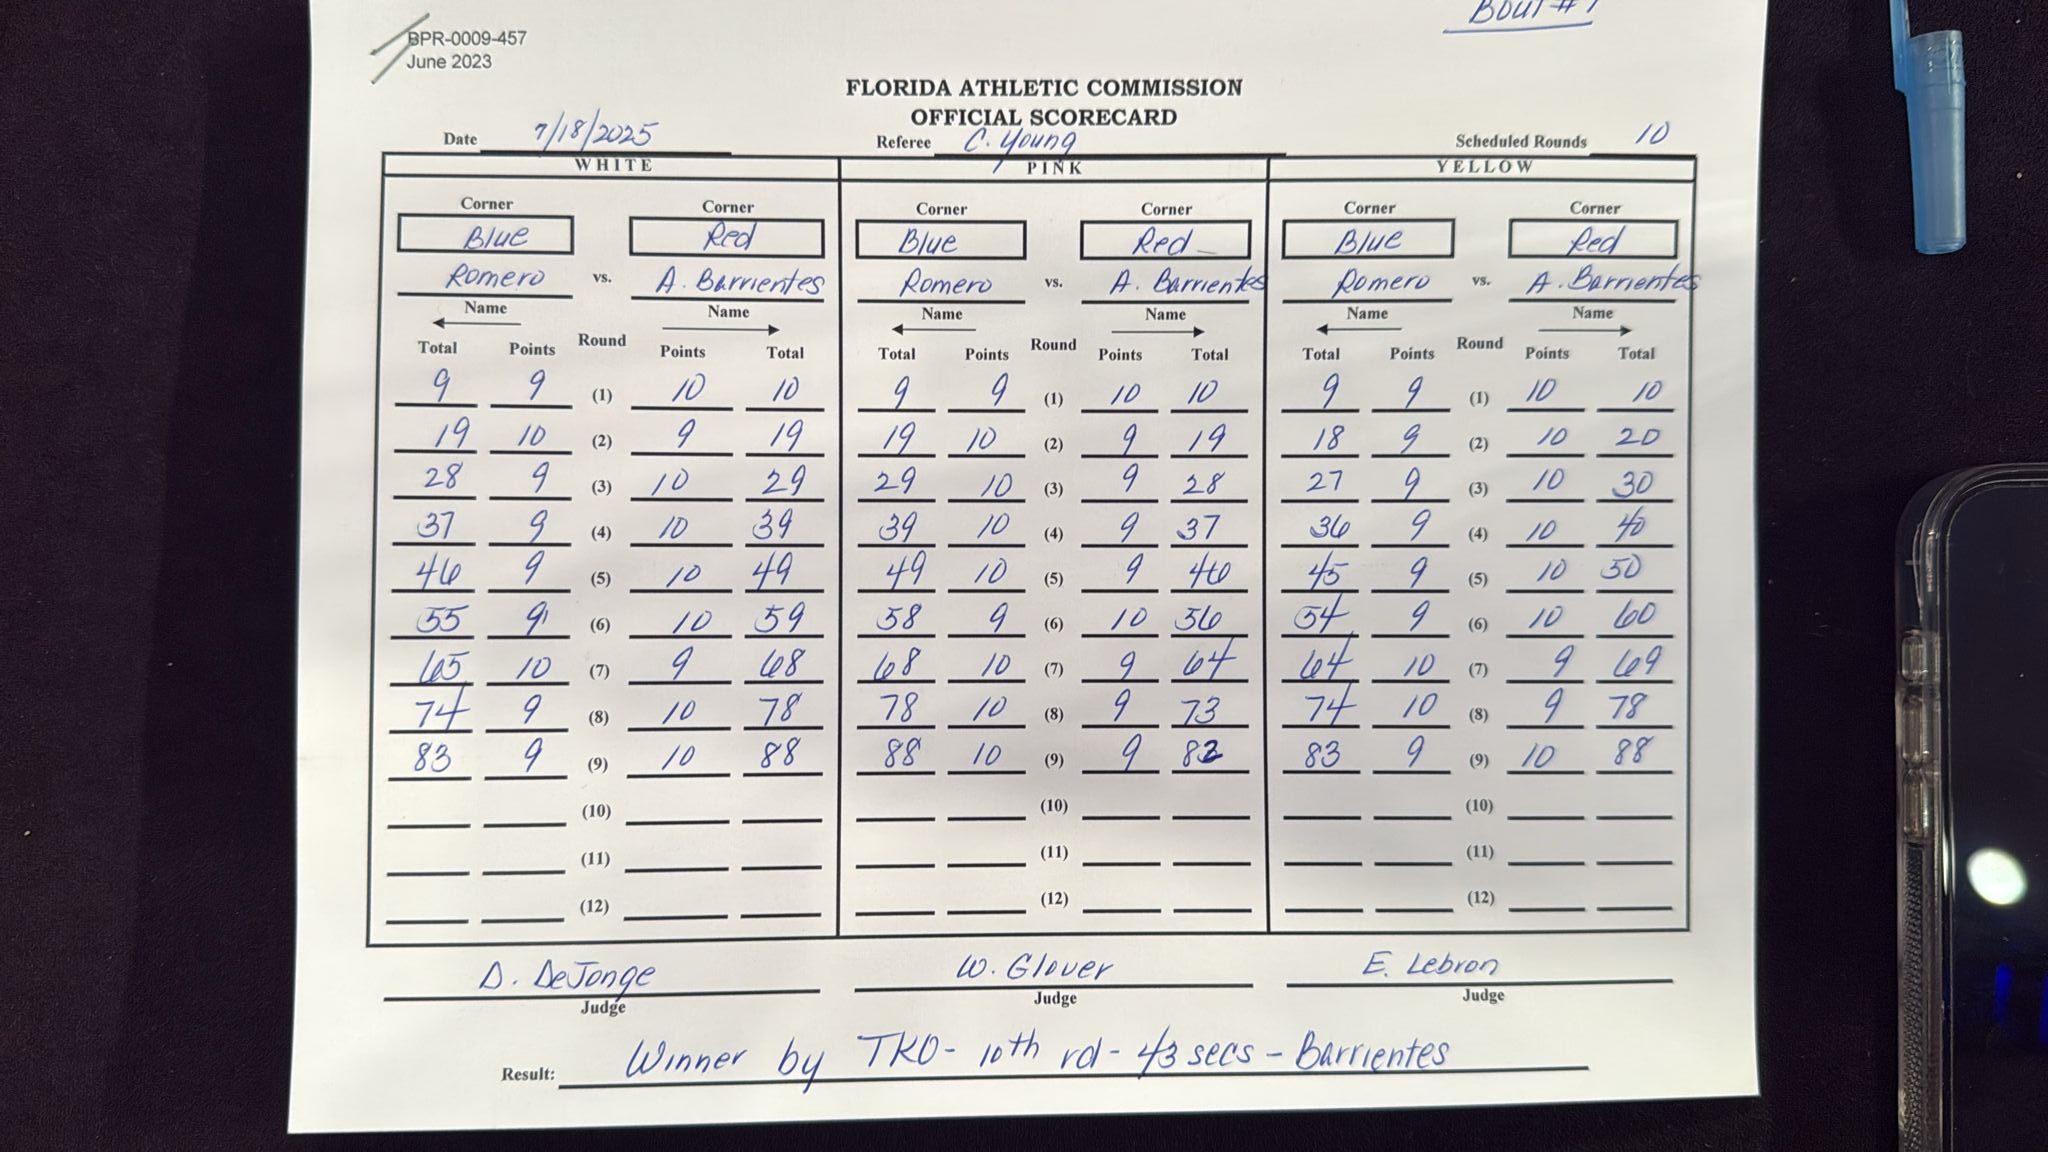 Bout #
BPR-0009-457
June 2023
FLORIDA ATHLETIC COMMISSION
OFFICIAL SCORECARD
Date 7/18/2025 Referee C. Young Scheduled Rounds 10
WHITE PINK YELLOW
Corner Corner Corner Corner Corner Corner
Blue Red Blue Red Blue Red
Romero vs. A. Barrientes Romero vs. A. Barrientes Romero vs. A. Barrientes
Name Name Name Name Name Name
Total Points Round Points Total Total Points Round Points Total Total Points Round Points Total
9 9 (1) 10 10 9 9 (1) 10 10 9 9 (1) 10 10
19 10 (2) 9 19 19 10 (2) 9 19 18 9 (2) 10 20
28 9 (3) 10 29 29 10 (3) 9 28 27 9 (3) 10 30
37 9 (4) 10 39 39 10 (4) 9 37 36 9 (4) 10 40
46 9 (5) 10 49 49 10 (5) 9 46 45 9 (5) 10 50
55 9 (6) 10 59 58 9 (6) 10 56 54 9 (6) 10 60
65 10 (7) 9 68 68 10 (7) 9 64 64 10 (7) 9 69
74 9 (8) 10 78 78 10 (8) 9 73 74 10 (8) 9 78
83 9 (9) 10 88 88 10 (9) 9 82 83 9 (9) 10 88
(10) (10) (10)
(11) (11) (11)
(12) (12) (12)
D. DeJonge W. Glover E. Lebron
Judge Judge Judge
Result: Winner by TKO - 10th rd - 43 secs - Barrientes